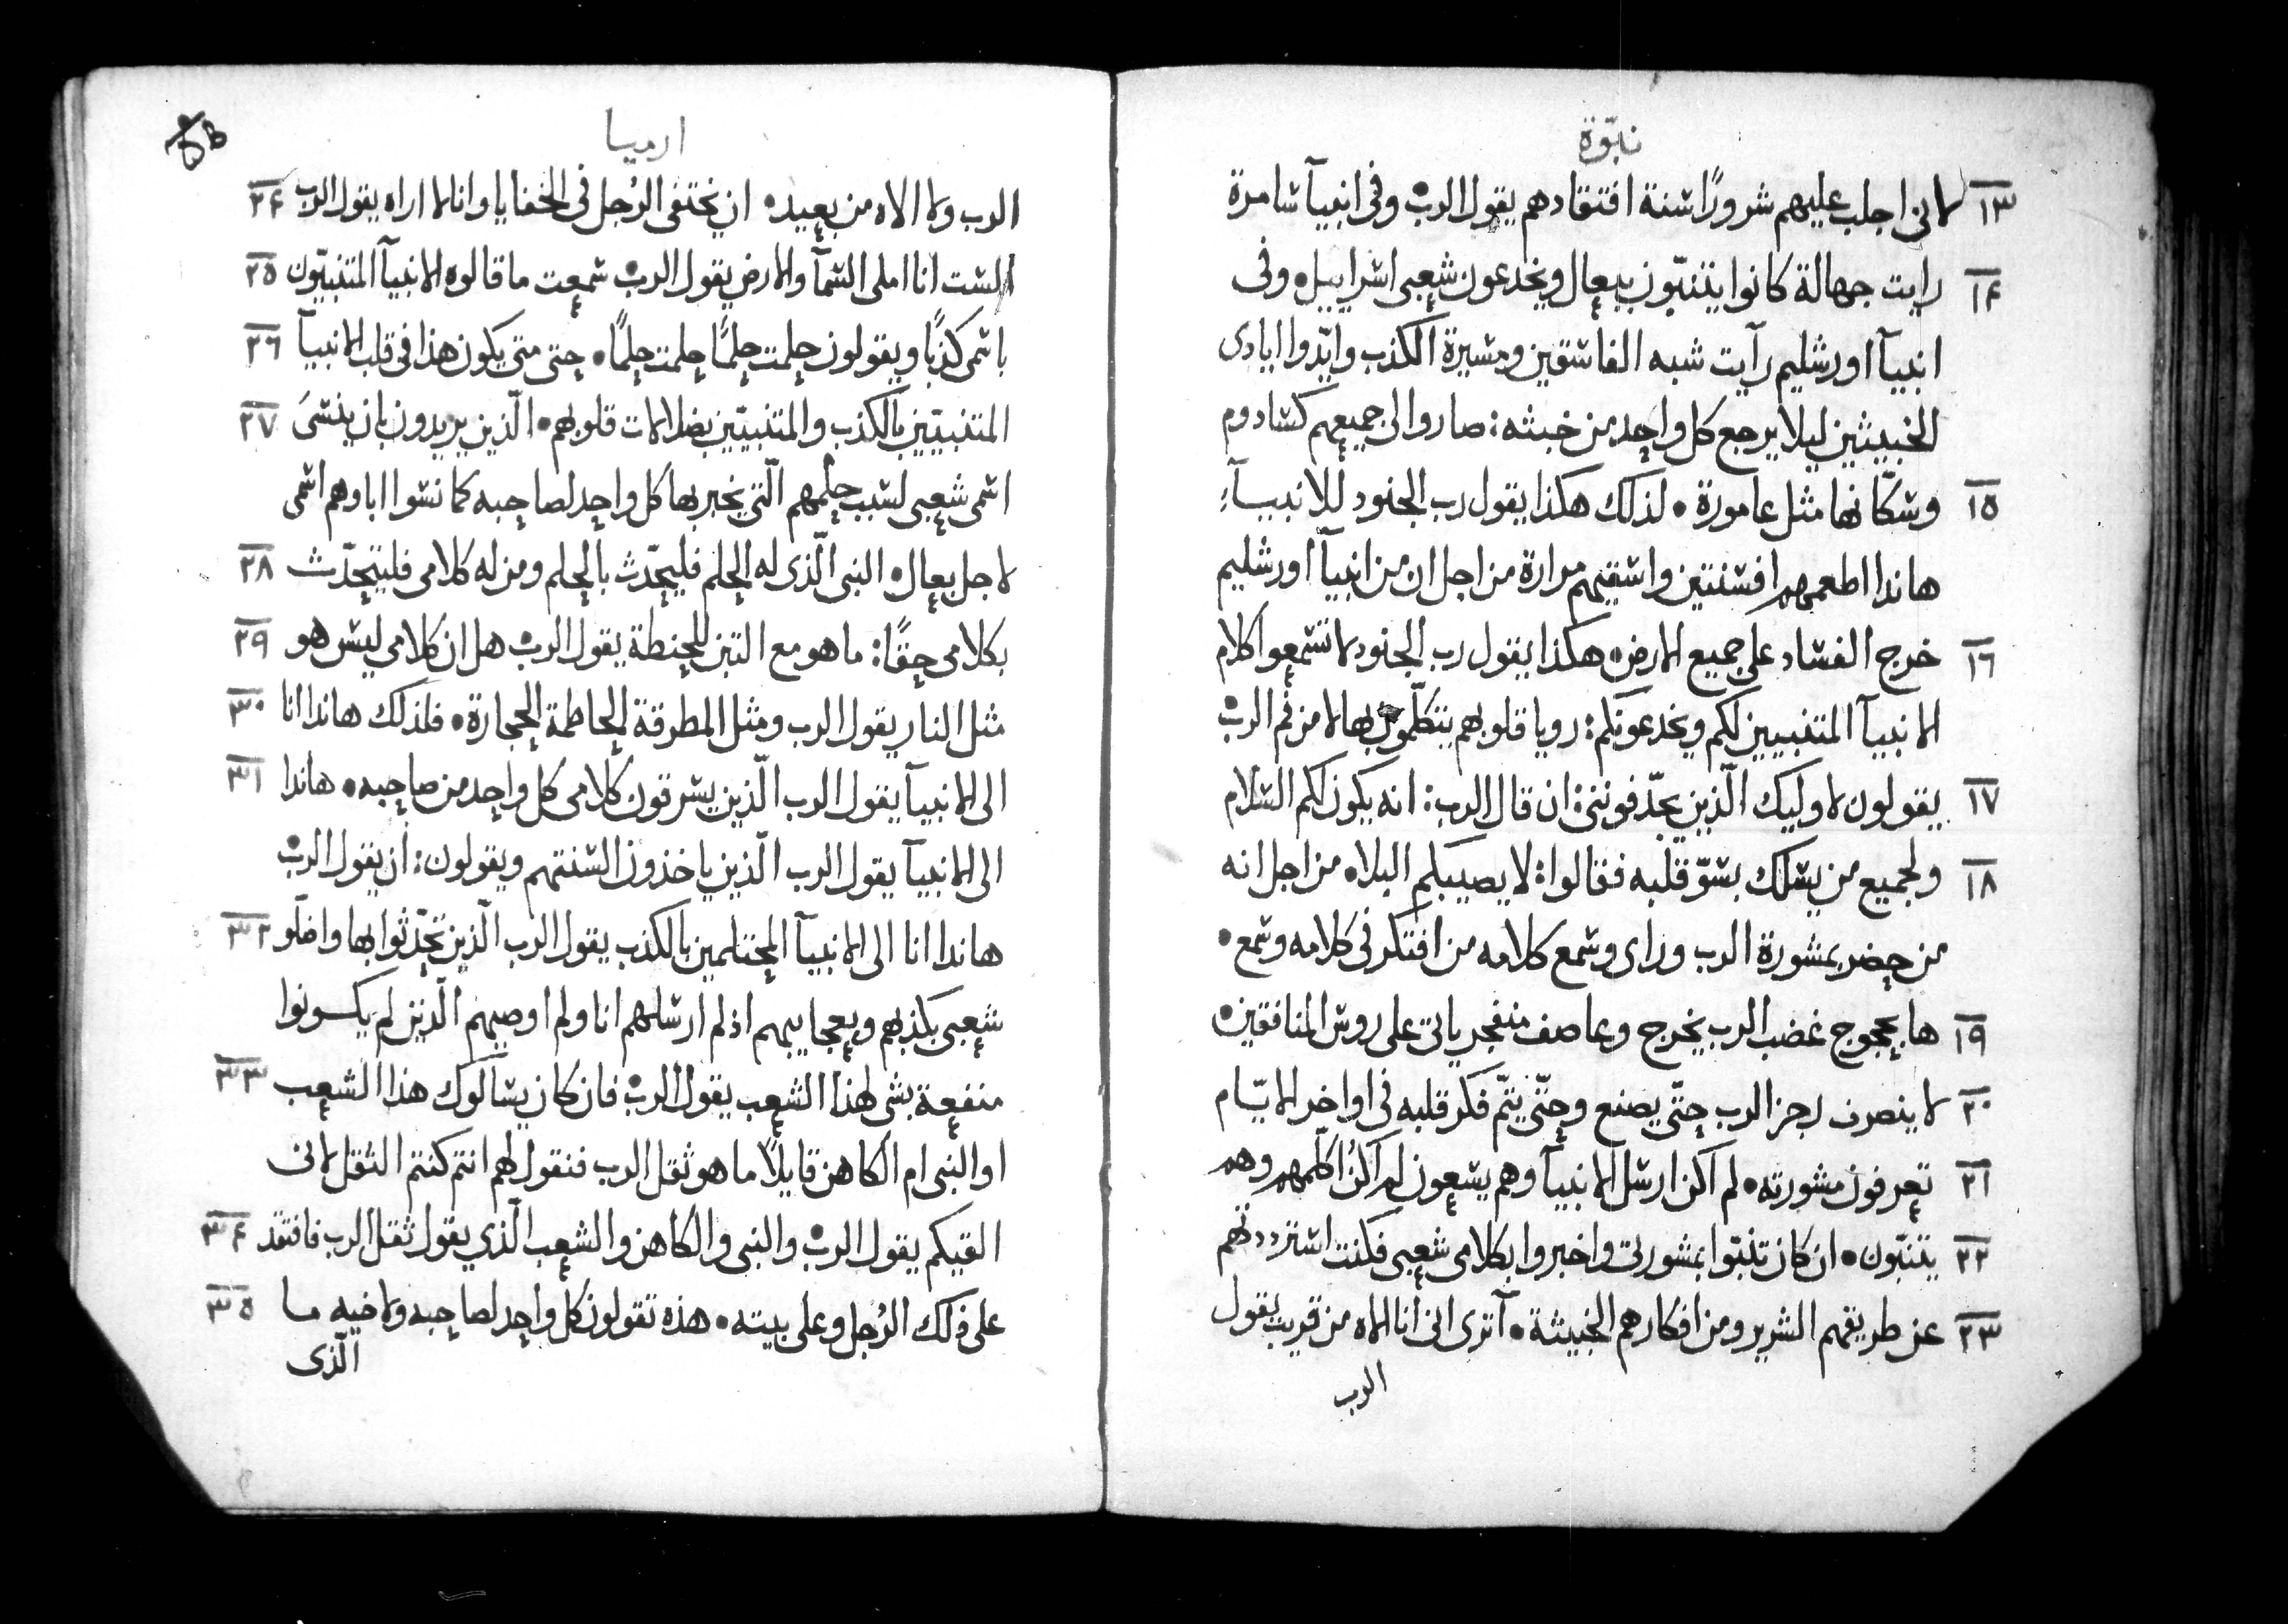 نبوّة
١٣ لانى اجلب عليهم شرورًا سنة افتقادهم يقول الرب وفى انبيآ سامرة
١٤ رايت جهالة كانوا يتنبّون ببعال ويخدعون شعبى اسراييل وفى
انبيآ اورشليم رآيت شبه الفاسقين ومسيرة الكذب وايّدوا ايادى
الخبيثين ليلا يرجع كل واحد من خبثه: صاروا لى جميعهم كسادوم
١٥ وسكّانها مثل عامورة • لذلك هكذا يقول رب الجنود للانبيآء
هاندا اطعمهم افسنتين واسقيهم مرارة من اجل ان من انبيآ اورشليم
١٦ خرج الفساد على جميع الارض • هكذا يقول رب الجنود لا تسمعوا كلام
الانبيآ المتنبيين لكم ويخدعونكم: رويا قلوبهم يتكلّمون بها لا من فم الرب
١٧ يقولون لاوليك الّذين يجدّفوننى: ان قال الرب: انه يكون لكم السلام
١٨ ولجميع من يسلك بسوّ قلبه فقالوا: لا يصيبكم البلاه من اجل انه
من حضر بمشورة الرب وراى وسمع كلامه من افتكر فى كلامه وسمع •
١٩ ها بحجوج غضب الرب يخرج وعاصف منفجر ياتى على روس المنافقين
٢٠ لا ينصرف رجز الرب حتّى يصنع وحتّى يتّم فكر قلبه فى اواخر الايّام
٢١ تعرفون مشورته • لم اكن ارسل الانبيآ وهم يسعون لم اكن اكلّمهم وهم
٢٢ يتنبّون • ان كان تنبّوا بمشورتى واخبروا بكلامى شعبى فكنت استرددتهم
٢٣ عن طريقهم الشرير ومن افكارهم الخبيثة • آترى انى انا الاه من قريب يقول
الرب
ارميا
الرب ولا الاه من بعيد • ان يختفى الرُجل فى الخفايا وانا لا اراه يقول الرب ٢٤
السْت انا املى السمآ والارض يقول الرب سمعت ما قالوه الانبيآ المتنبّيون ٢٥
باسمى كذبًا ويقولون حلمت حلمًا حلمت حلمًا • حتى متى يكون هذا فى قلب الانبيآ ٢٦
المتنبّيين بالكذب والمتنبيّين بضلالات قلوبهم • الّذين يريدون بان ينسىَ ٢٧
اسمى شعبى لسبب حلمهم الّتى يخبر بها كل واحد لصاحبه كما نسوا اباوهم اسمى
لاجل بعال • النبى الّذى له الحلم فليحدّث بالحلم ومن له كلامى فليتحدّث ٢٨
بكلامى حقًا: ما هو مع التبن للحنطة يقول الرب هل ان كلامى ليس هو ٢٩
مثل النار يقول الرب ومثل المطرقة الحاطمة الحجارة • فلذلك هاندا انا ٣٠
الى الانبيآ يقول الرب الّذين يسرقون كلامى كل واحد من صاحبه • هاندا ٣١
الى الانبيآ يقول الرب الّذين ياخذون السنتهم ويقولون: ان يقول الرب
هاندا انا الى الانبيآ المحتلمين بالكذب يقول الرب الّذين تحّدثوا بها واضلّو ٣٢
شعبى بكذبهم وبعجايبهم اذ لم ارسلهم انا ولم اوصيهم الّذين لم يكونوا
منفعة بشى لهذا الشعب يقول الرب فان كان يسالوك هذا الشعب ٣٣
او النبى ام الكاهن قايلًا ما هو ثقل الرب فنقول لهم انتم كنتم الثقل لانى
القيكم يقول الرب والنبى والكاهن والشعب الّذي يقول ثقل الرب فافتقد ٣٤
على ذلك الرُجل وعلى بيته • هذه تقولون كل واحد لصاحبه ولاخيه ما ٣٥
الّذى